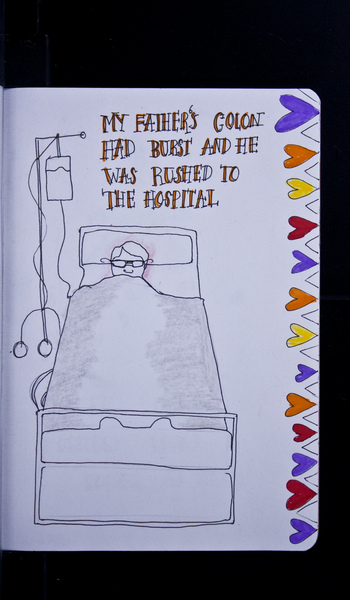 MY FATHER'S COLON
HAD BURST AND HE
WAS RUSHED TO
THE HOSPITAL